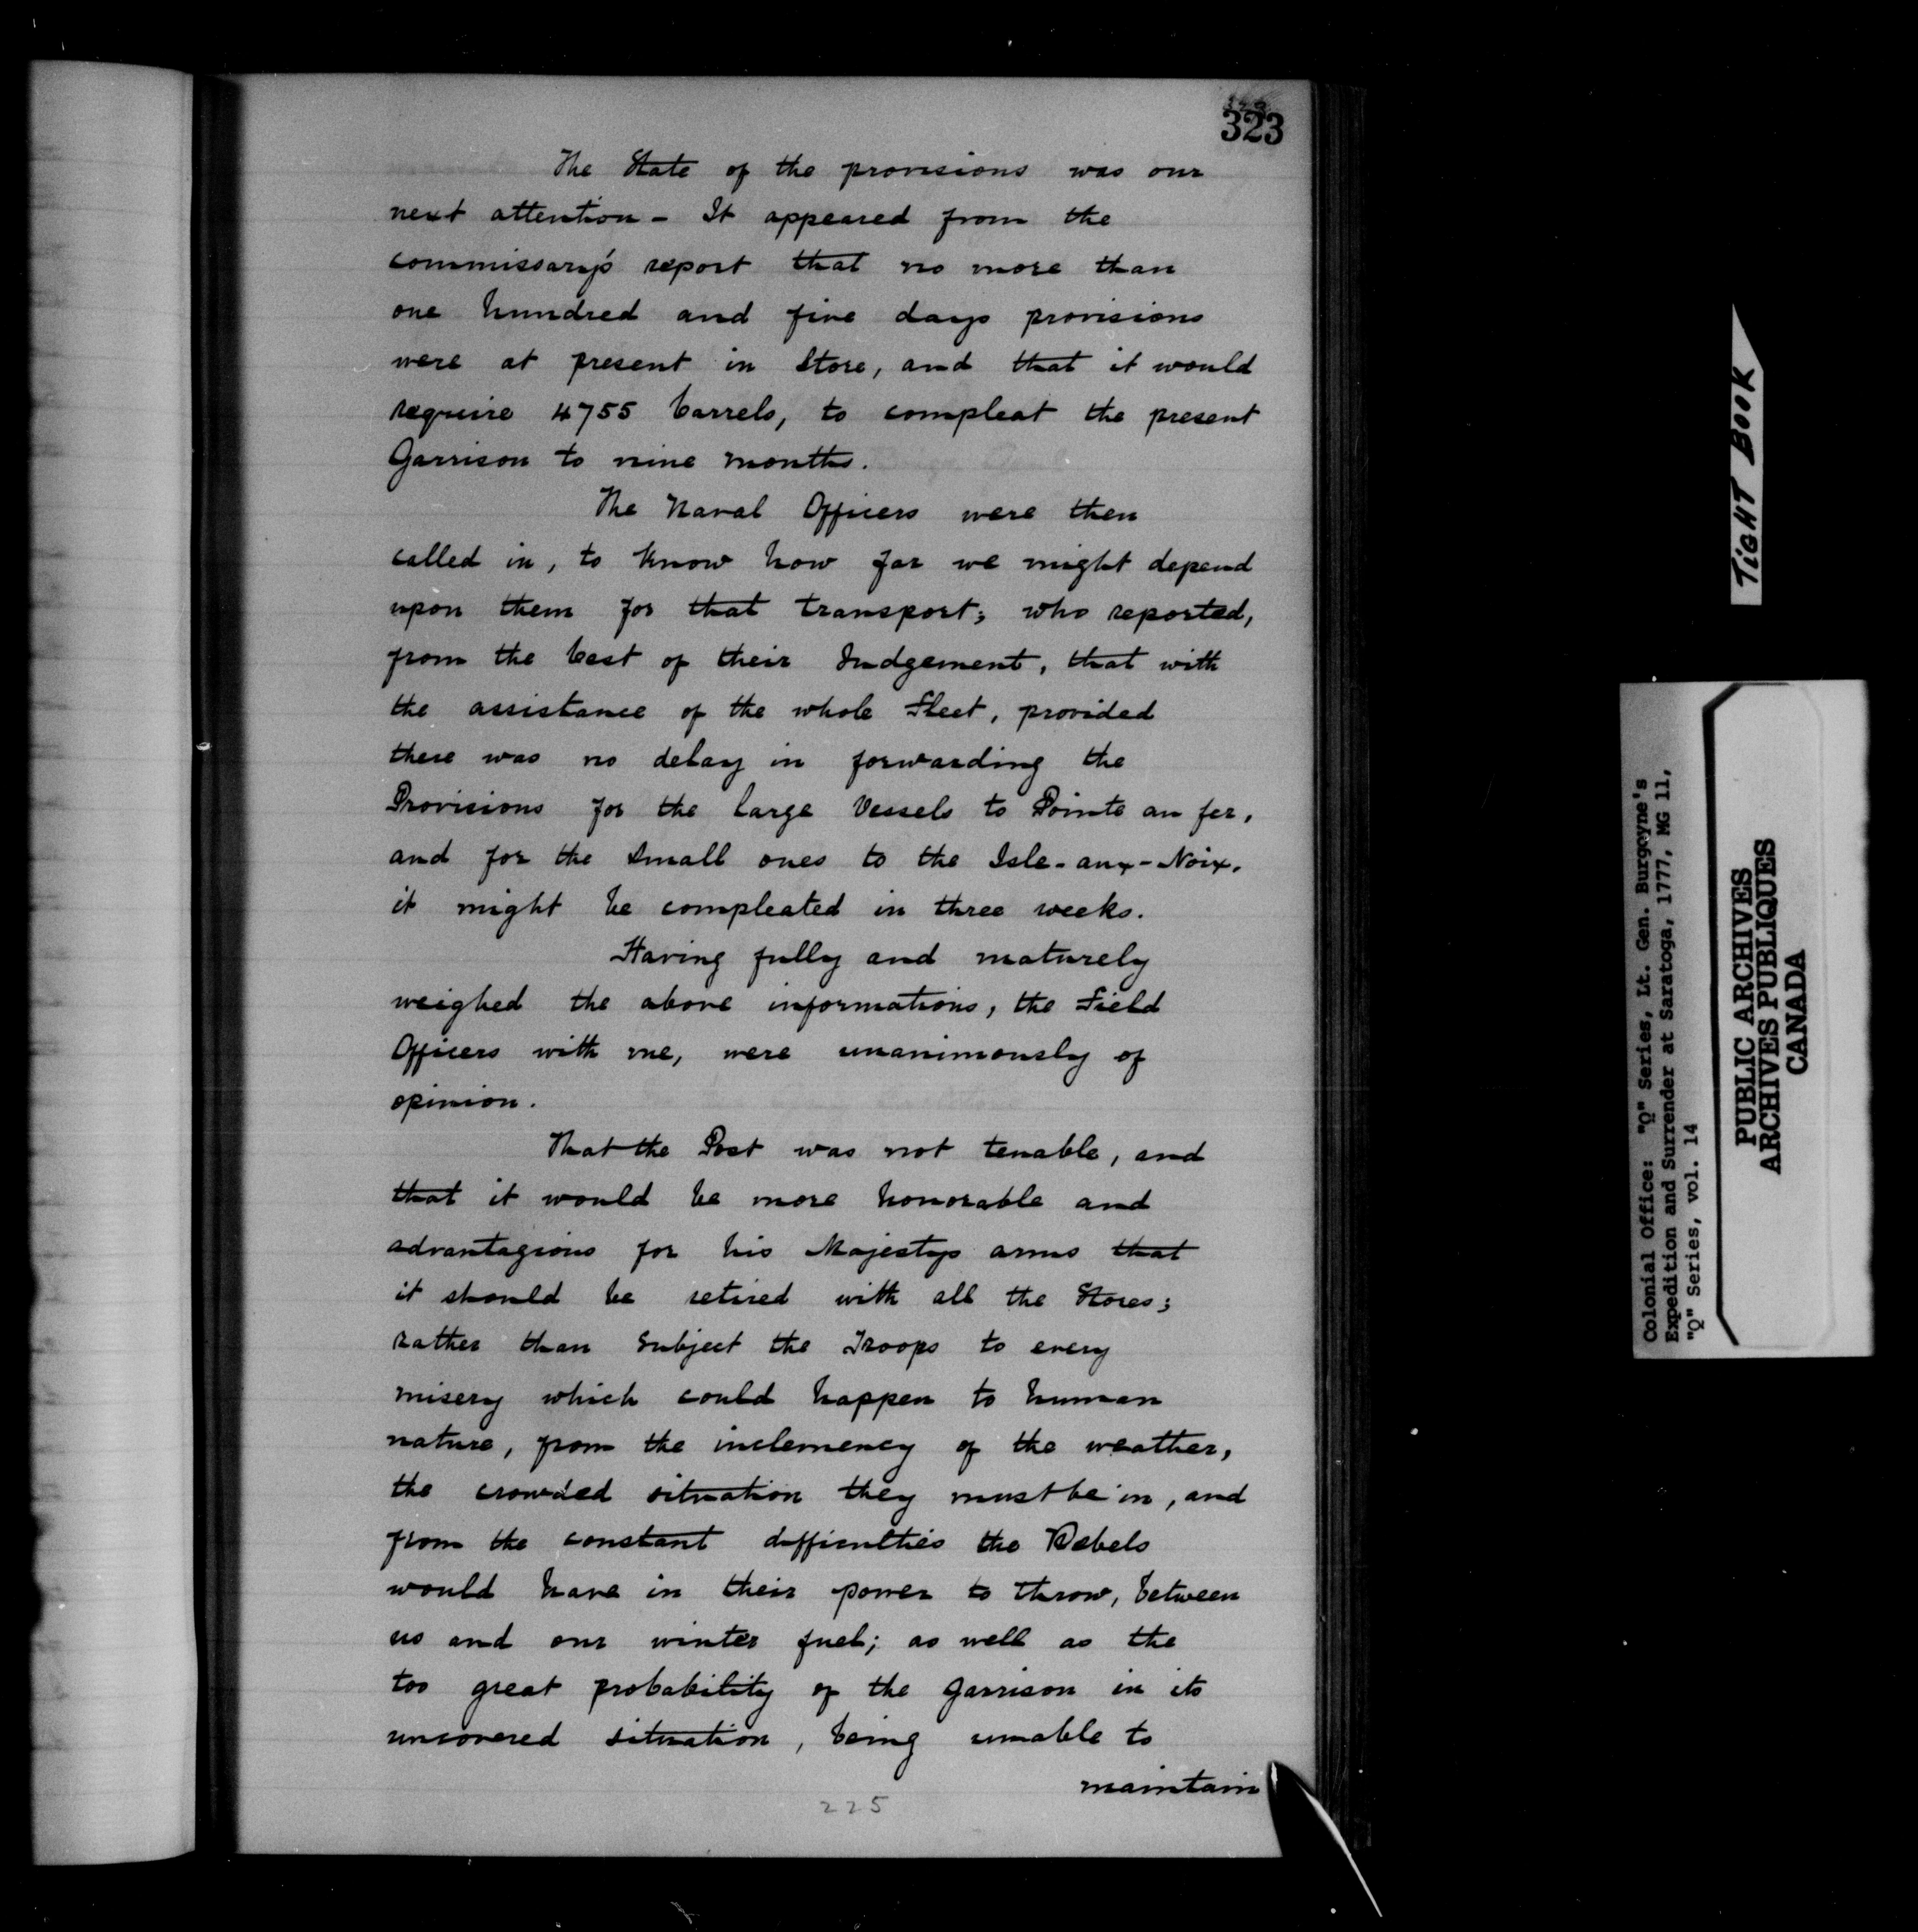 323
The State of the provisions was our
next attention - It appeared from the
commissary's report that no more than
one hundred and five days provisions
were at present in Store, and that it would
require 4755 barrels, to compleat the present
Garrison to nine months.
The Naval Officers were then
called in, to know how far we might depend
upon them for that transport; who reported,
from the best of their Judgement, that with
the assistance of the whole Fleet, provided
there was no delay in forwarding the
Provisions for the large Vessels to Pointe au fer,
and for the small ones to the Isle-aux-Noix,
it might be compleated in three weeks.
Having fully and maturely
weighed the above informations, the Field
Officers with me, were unanimously of
opinion.
That the Post was not tenable, and
that it would be more honorable and
advantagious for his Majestys arms that
it should be retired with all the Stores;
rather than subject the Troops to every
misery which could happen to human
nature, from the inclemency of the weather,
the crowded situation they must be in, and
from the constant difficulties the Rebels
would have in their power to throw, between
us and our winter fuel; as well as the
too great probability of the garrison in its
uncovered situation, being unable to
maintain
225
TIGHT BOOK
Colonial Office: "Q" Series, Lt. Gen. Burgoyne's
Expedition and Surrender at Saratoga, 1777, MG 11,
"Q" Series, vol. 14
PUBLIC ARCHIVES
ARCHIVES PUBLIQUES
CANADA